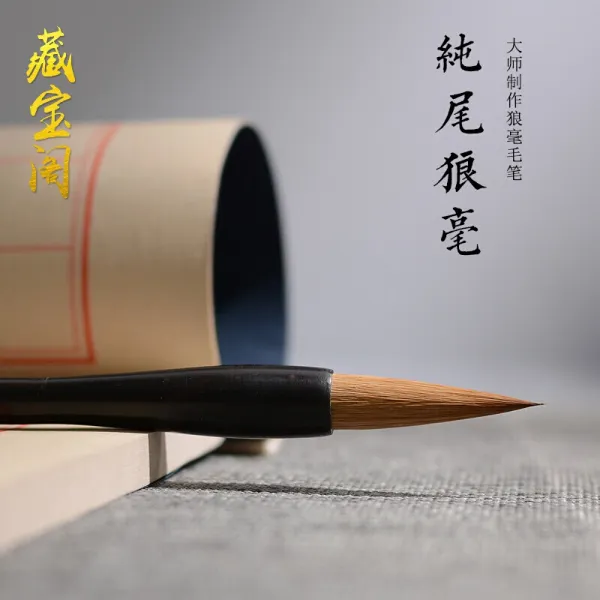 大师制作狼毫毛笔
純尾狼毫
藏宝阁